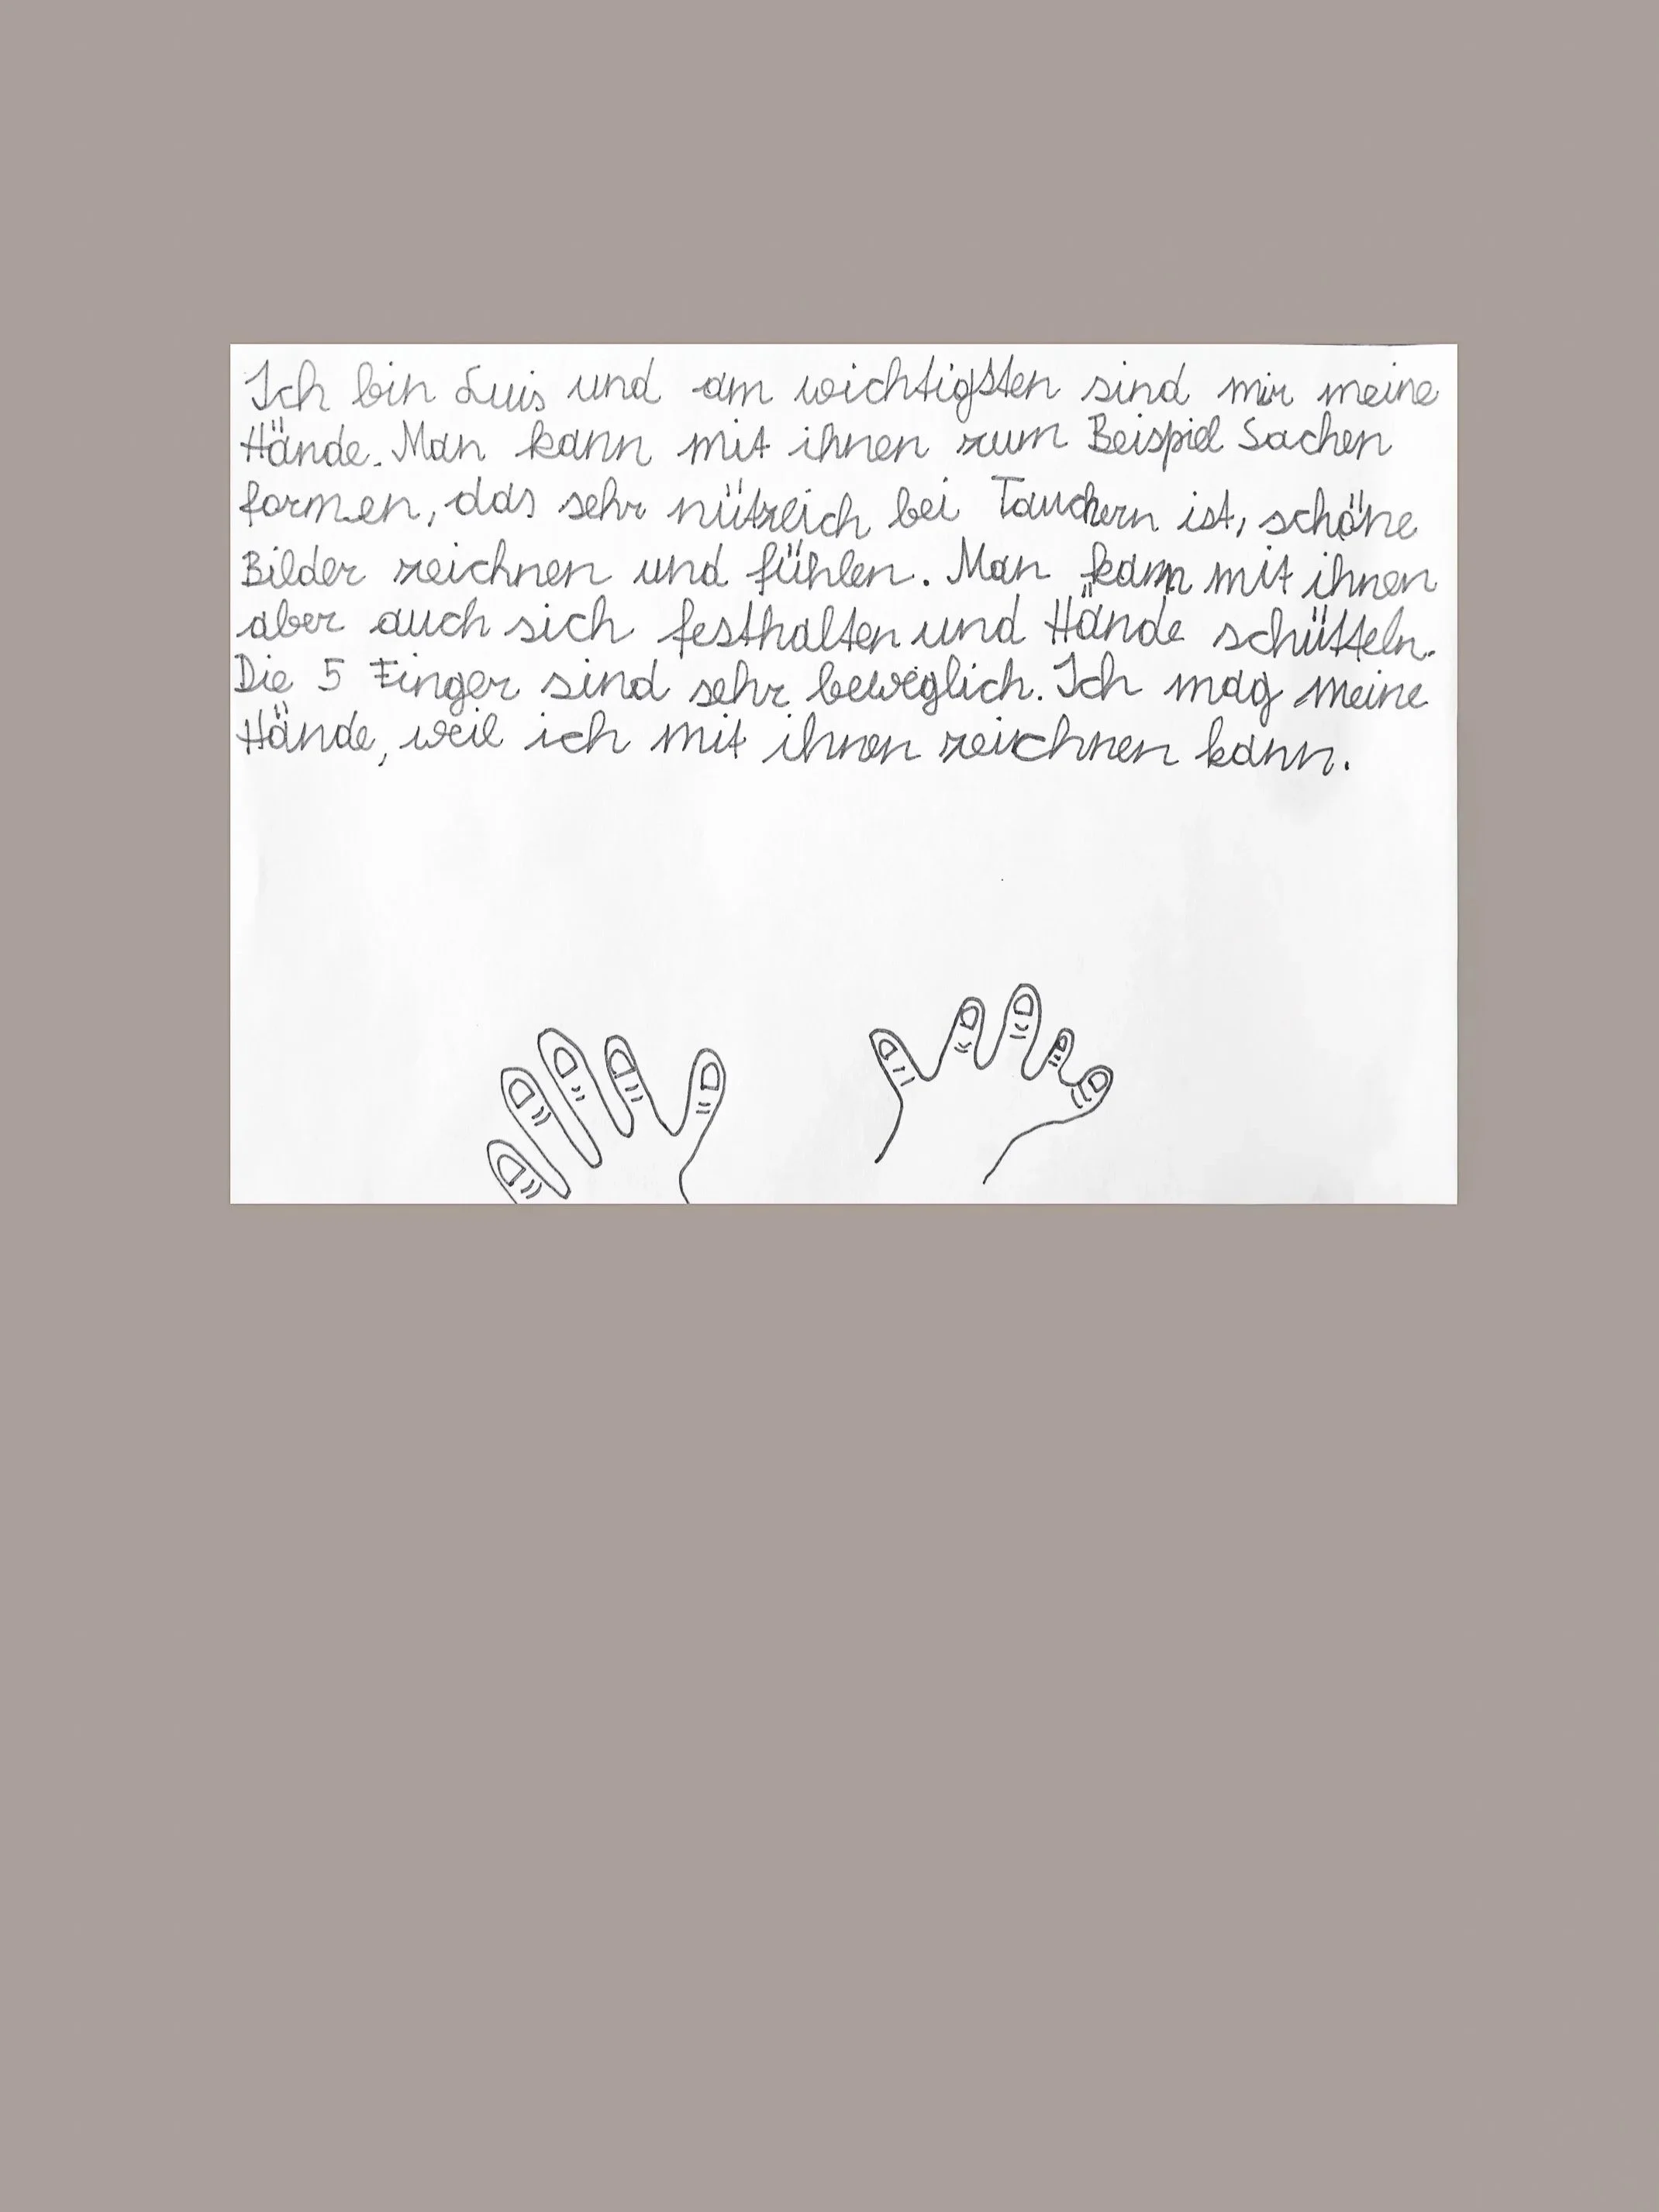 Ich bin Luis und am wichtigsten sind mir meine
Hände. Man kann mit ihnen zum Beispiel Sachen
formen, das sehr nützlich bei Tauchern ist, schöne
Bilder zeichnen und fühlen. Man kann mit ihnen
aber auch sich festhalten und Hände schütteln.
Die 5 Finger sind sehr beweglich. Ich mag meine
Hände, weil ich mit ihnen zeichnen kann.